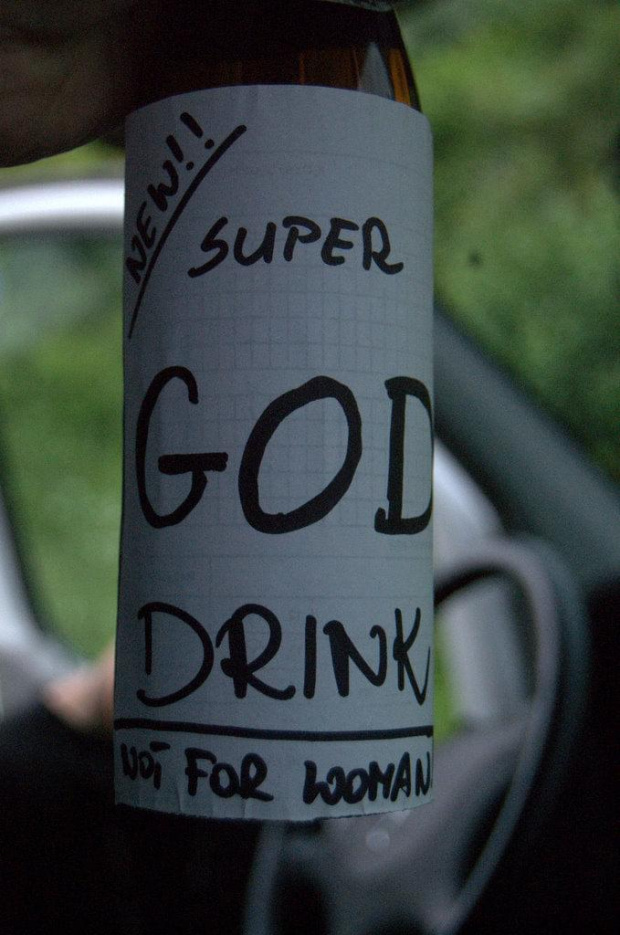 NEW!!
SUPER
GOD
DRINK
NOT FOR WOMAN